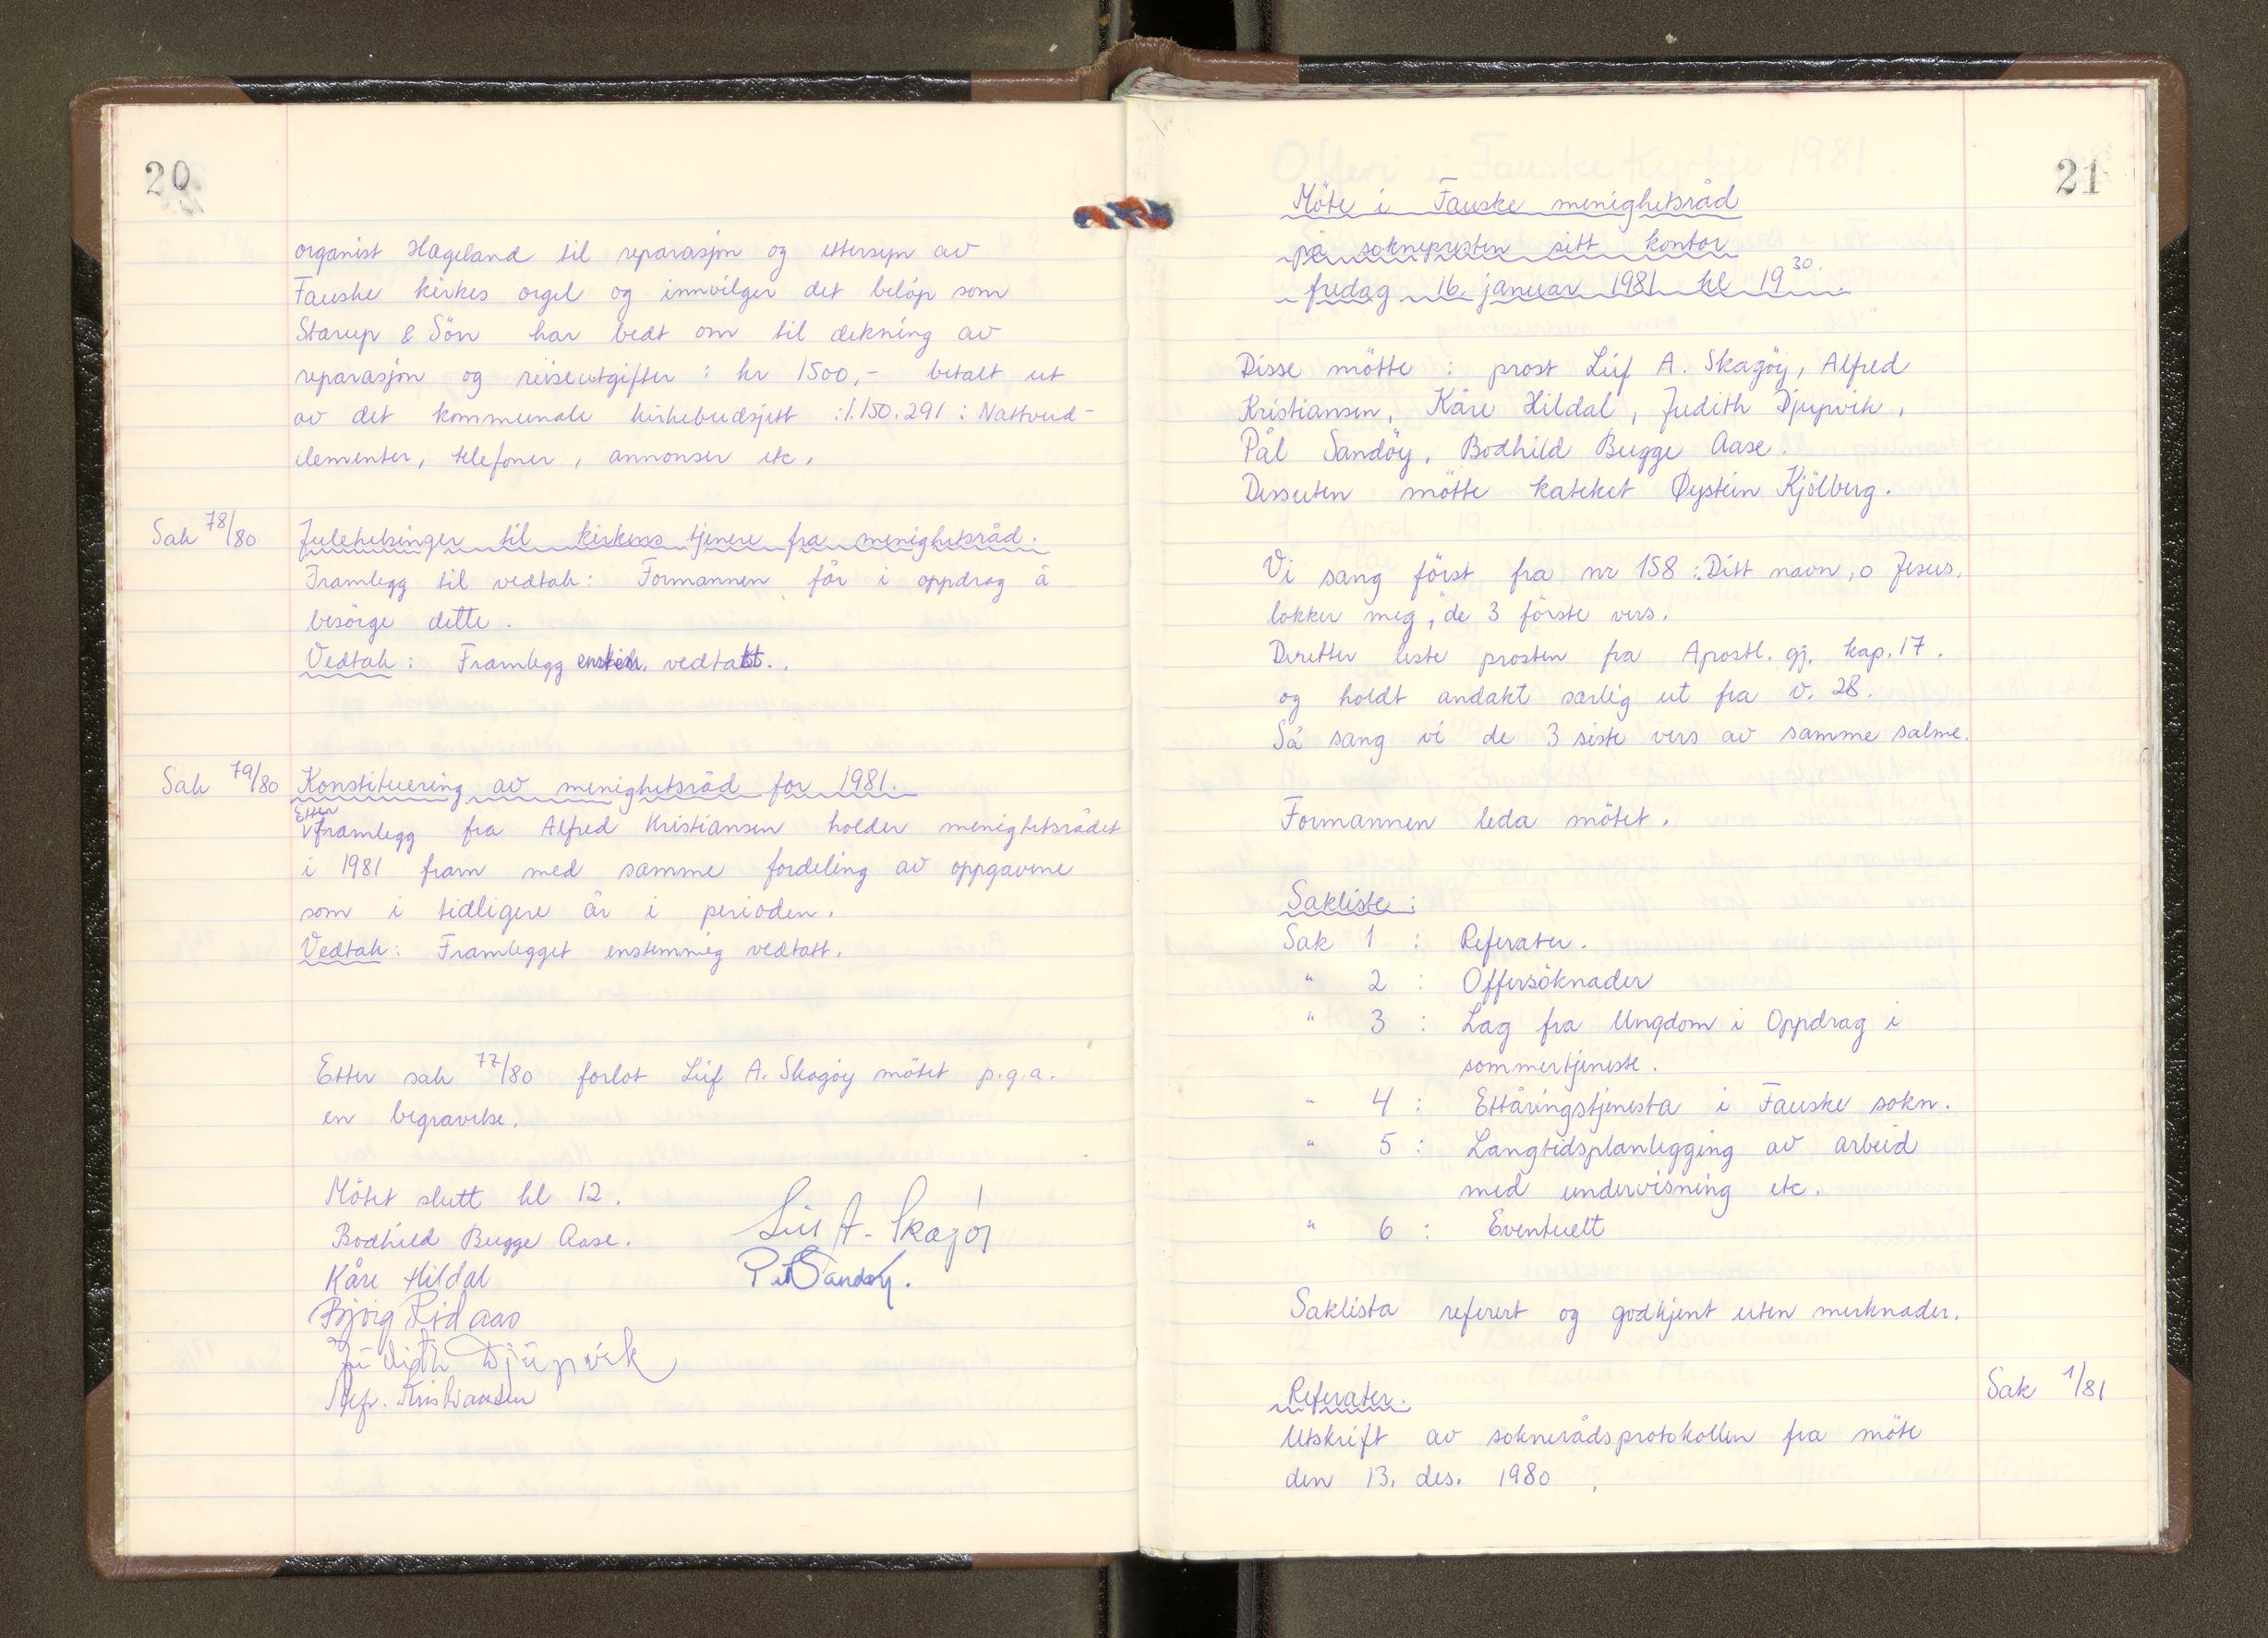 20
organist Hægeland til reparasjon og ettersyn av
Fauske kirkes orgel og innvilger det beløp som
Starup & Sön har bedt om til dekning av
reparasjon og reiseutgifter : kr 1500,- betalt ut
av det kommunale kirkebudsjett :1.150.291 : Nattverd-
elementer, telefoner, annonser etc.
Sak 78/80
Julehelsinger til kirkens tjenere fra menighetsråd.
Framlegg til vedtak: Formannen får i oppdrag å
besörge dette.
Vedtak: Framlegg vedtatt.
Sak 79/80
Konstituering av menighetsråd for 1981.
Etter
framlegg fra Alfred Kristiansen holder menighetsrådet
i 1981 fram med samme fordeling av oppgavene
som i tidligere år i perioden.
Vedtak: Framlegget enstemmig vedtatt.
Etter sak 77/80 forlot Leif A. Skagöy mötet p.g.a.
en begravelse.
Mötet slutt kl 12.
Bodhild Bugge Aase.
Leif A. Skagöy
Kåre Hildal
Pål Sandöy.
Judith Djupvik
Alfr. Kristiansen
21
Möte i Fauske menighetsråd
på soknepresten sitt kontor
fredag 16. januar 1981 kl 19 30.
Disse mötte : prost Leif A. Skagöy, Alfred
Kristiansen, Kåre Hildal, Judith Djupvik,
Pål Sandöy, Bodhild Bugge Aase.
Dessuten mötte kateket Øystein Kjölberg.
Vi sang först fra nr 158 : "Ditt navn, o Jesus,
lokker meg," de 3 förste vers.
Deretter leste prosten fra Apostl. gj. kap. 17.
og holdt andakt særlig ut fra v. 28.
Så sang vi de 3 siste vers av samme salme.
Formannen leda mötet.
Sakliste :
Sak 1 : Referater.
" 2 : Offersöknader
" 3 : Lag fra Ungdom i Oppdrag i
sommertjeneste.
" 4 : Ettåringstjenesta i Fauske sokn.
" 5 : Langtidsplanlegging av arbeid
med undervisning etc.
" 6 : Eventuelt
Saklista referert og godkjent uten merknader.
Sak 1/81
Referater.
Utskrift av soknerådsprotokollen fra möte
den 13. des. 1980.